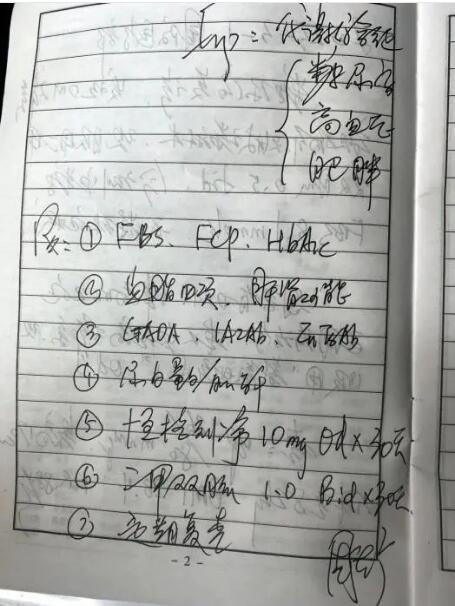 Imp: 代谢综合征
糖尿病
高血压
肥胖
Rx: ① FBS、FCP、HbA1c
② 血脂四项、肝肾功能
③ GADA、IA2Ab、ZnT8Ab
④ 尿白蛋白/肌酐
⑤ 恒格列净 10mg Qd×30天
⑥ 二甲双胍 1.0 Bid×30天
⑦ 定期复壳
- 2 -